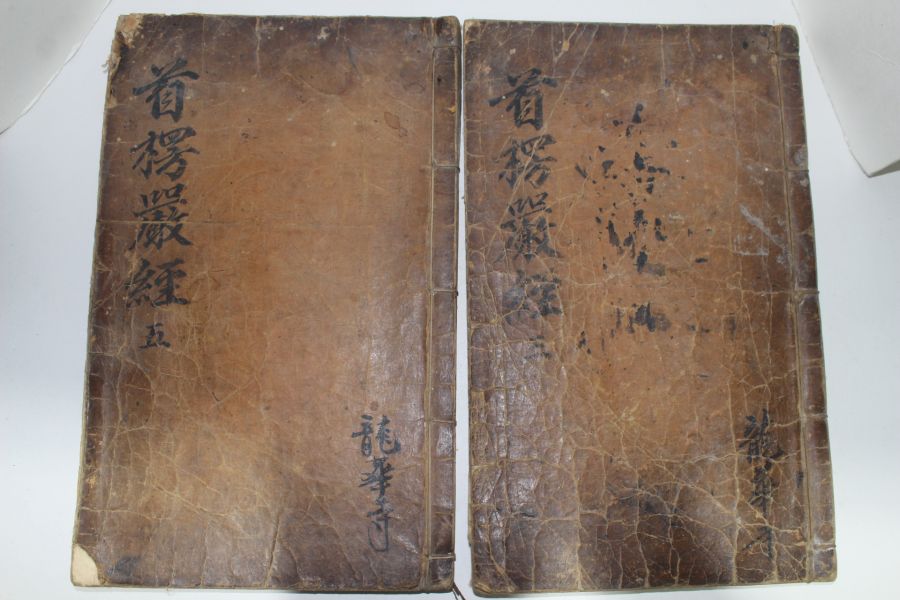 首楞嚴經
五
龍華寺
首楞嚴經
三
龍華寺